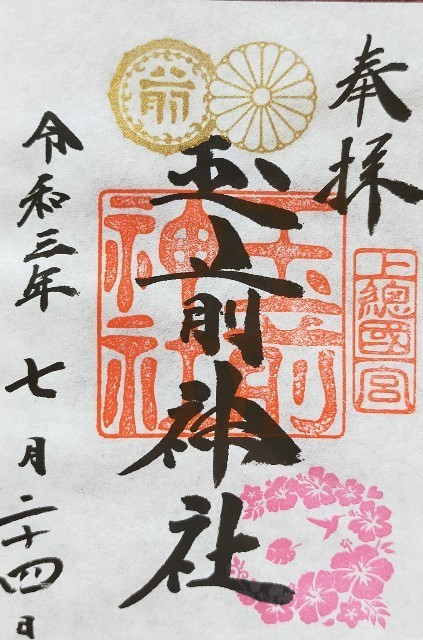 奉拝
上總國一宮
玉前神社
玉前神社
令和三年七月二十四日